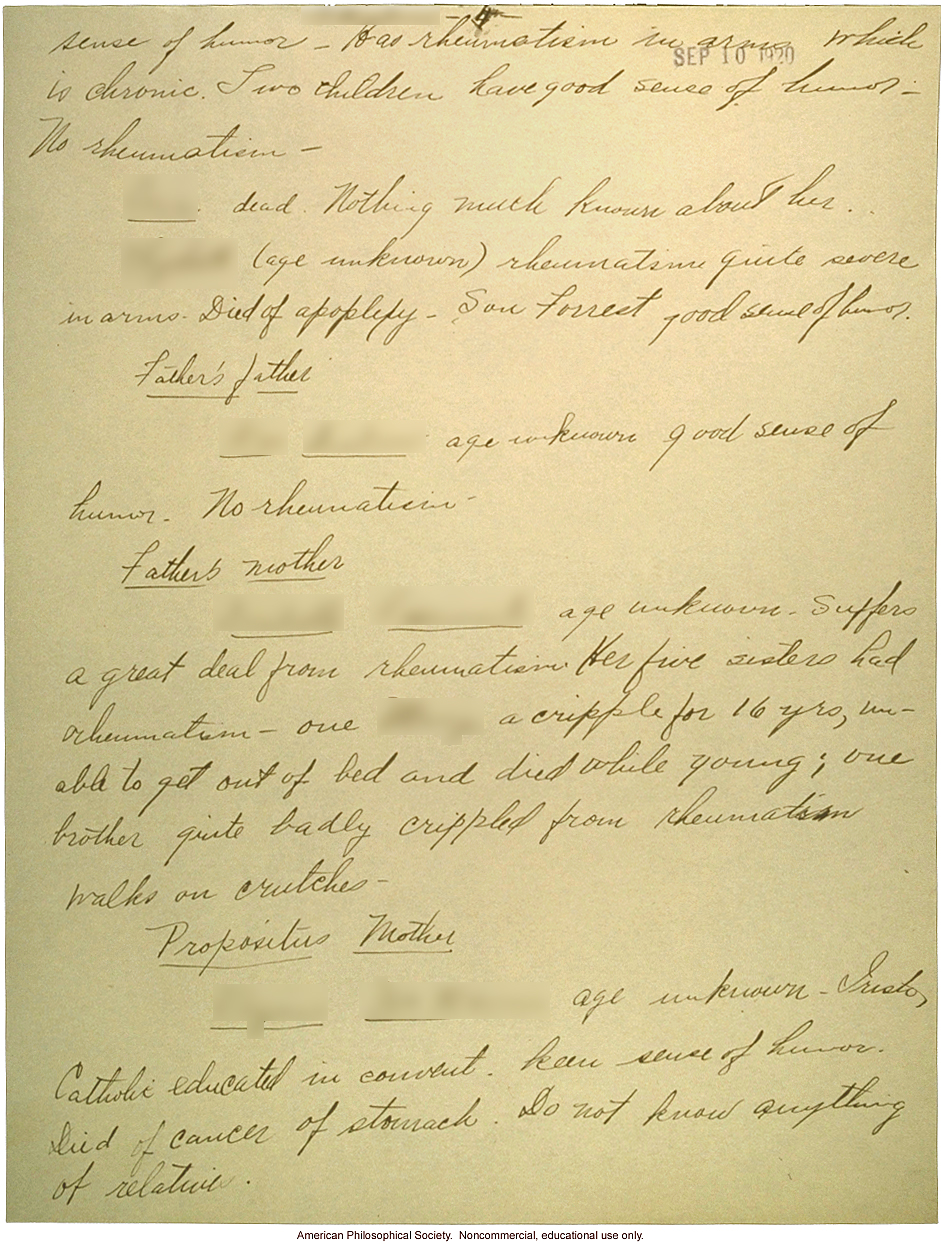 4
sense of humor - Has rheumatism in arms which
SEP 10 1920
is chronic. Two children have good sense of humor -
No rheumatism -
dead. Nothing much known about her.
(age unknown) rheumatism quite severe
in arms. Died of apoplexy - Son Forrest good sense of humor.
Father's father
age unknown good sense of
humor. No rheumatism -
Father's mother
age unknown - Suffers
a great deal from rheumatism. Her five sisters had
rheumatism - one a cripple for 16 yrs, un-
able to get out of bed and died while young; one
brother quite badly crippled from rheumatism
walks on crutches -
Propositus Mother
age unknown - Irish,
Catholic educated in convent. keen sense of humor.
Died of cancer of stomach. Do not know anything
of relatives.
American Philosophical Society. Noncommercial, educational use only.